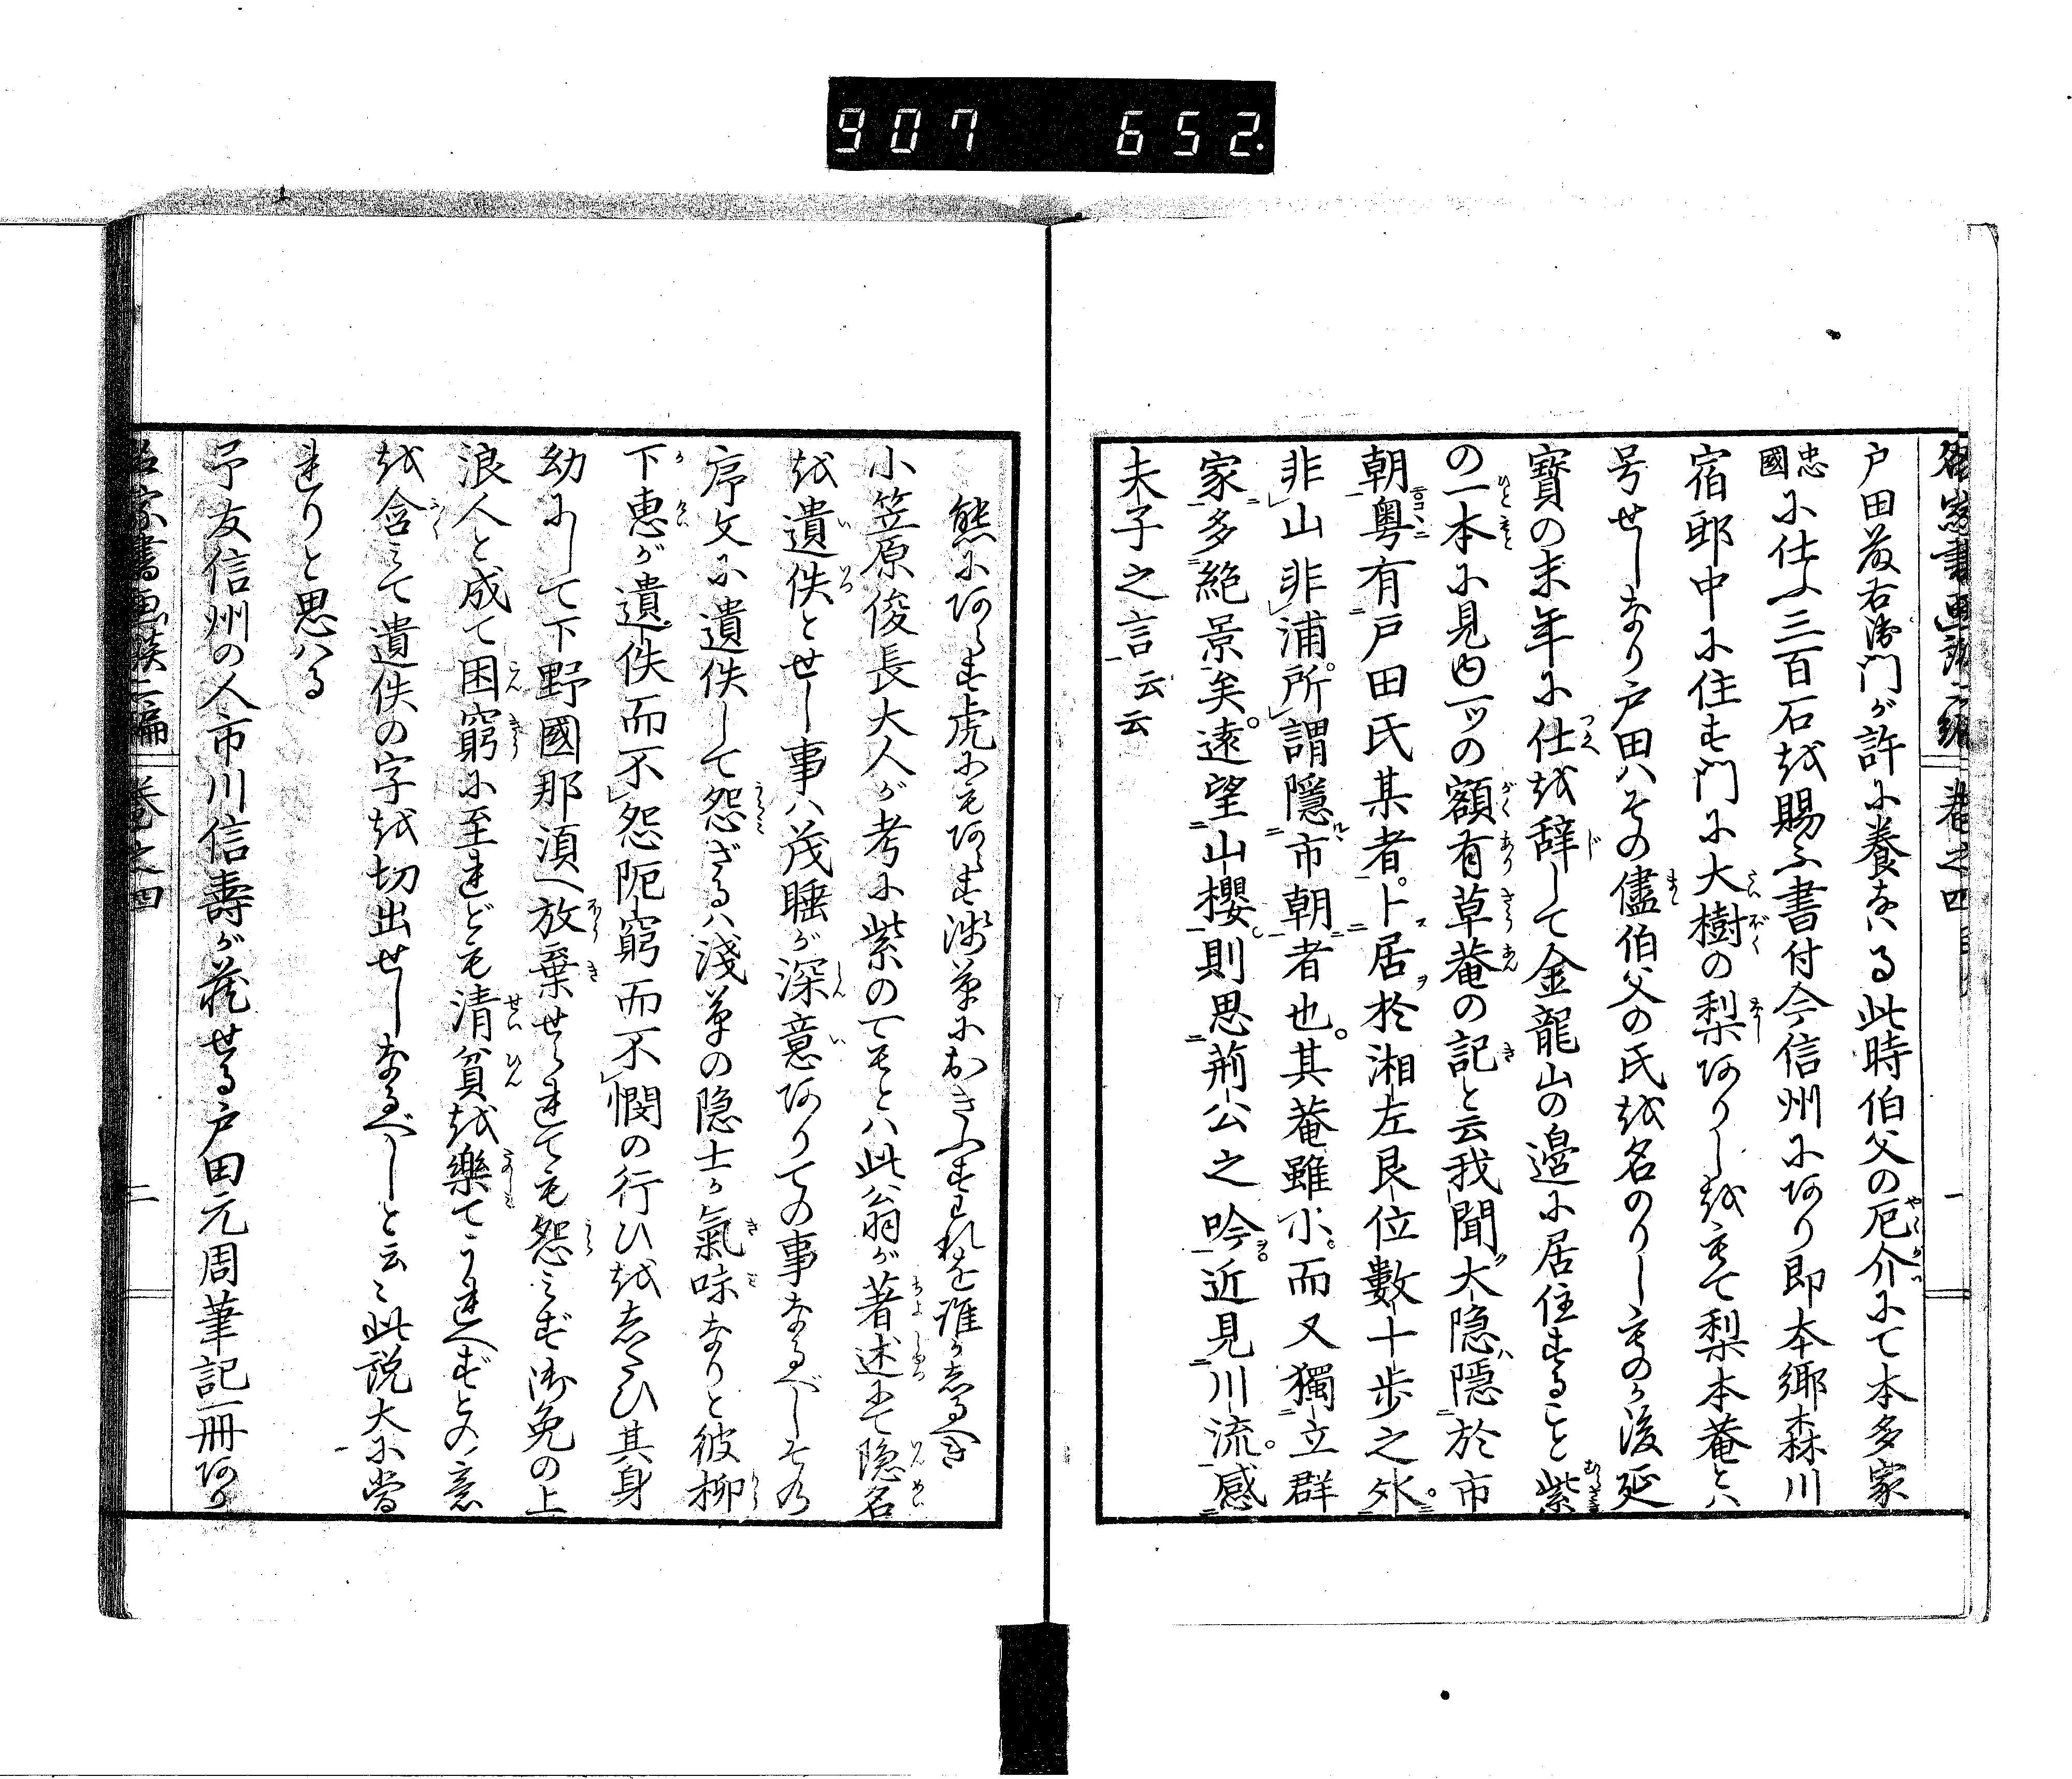 907 652
名家書画談二編 巻之四 一
戸田茂右衛門が許に養なはる此時伯父の厄介にて本多家
忠國に仕ふ三百石を賜ふ書付今信州にあり即本郷森川
宿邸中に住す門に大樹の梨ありしをもて梨本菴とハ
号せしなり戸田ハその儘伯父の氏を名のりしものか後延
寳の末年に仕を辞して金龍山の邉に居住すること紫
の一本に見ゆ一ツの額有草菴の記と云我聞大隐隱於市
朝粤有戸田氏某者卜居於湘左艮位數十歩之外
非山非浦所謂隱市朝者也其菴雖小而又獨立群
家多絶景矣遠望山櫻則思荊公之吟近見川流感
夫子之言云云
熊にあらす虎にもあらす浅草におきふすわれを誰か志るへき
小笠原俊長大人が考に紫のてもとハ此翁が著述まて隐名
を遺佚とせし事ハ茂睡が深意ありての事なるべしその
序文に遺佚して怨ざるハ淺草の隐士か氣味なりと彼柳
下恵が遺佚而不怨阨窮而不憫の行ひを志たひ其身
幼にして下野國那須へ放棄せられても怨みず御免の上
浪人と成て困窮に至れども清貧を樂てうれへずとの意
を含みて遺佚の字を切出せしなるべしと云々此説大に當
れりと思はる
予友信州の人市川信壽が蔵せる戸田元周筆記一冊あり
名家書画談二編 巻之四 二